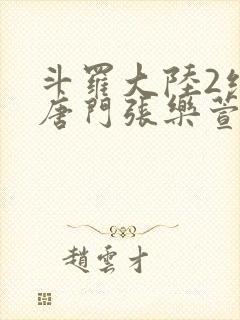 斗羅大陸2
唐門張樂萱
趙雲才